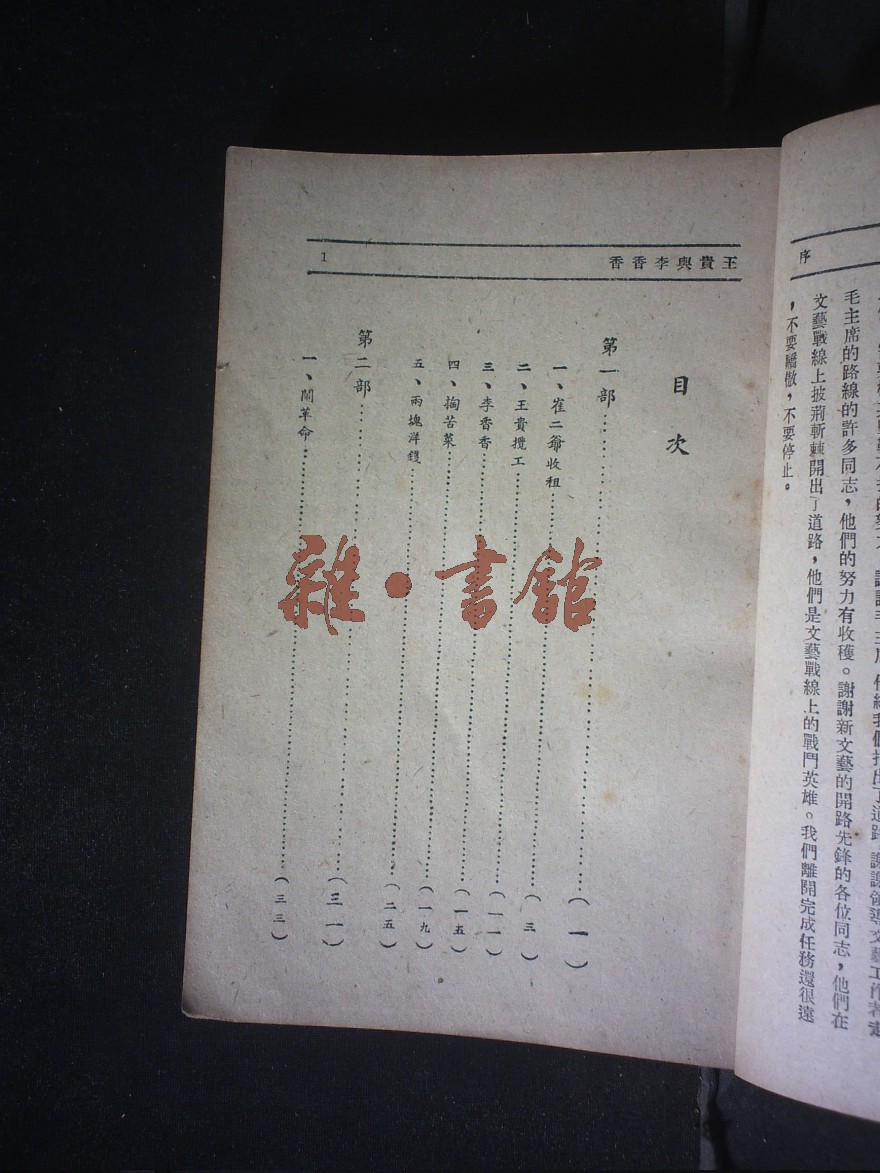 序
毛主席的路線的許多同志，他們的努力有收穫。謝謝新文藝的開路先鋒的各位同志，他們在
文藝戰線上披荆斬棘開出了道路，他們是文藝戰線上的戰鬥英雄。我們離開完成任務還很遠
，不要驕傲，不要停止。
王貴與李香香
1
目次
第一部……（一）
一、崔二爺收租……（三）
二、王貴攬工……（一一）
三、李香香……（一五）
四、掏苦菜……（一九）
五、兩塊洋錢……（二五）
第二部……（三一）
一、鬧革命……（三三）
雜·書館